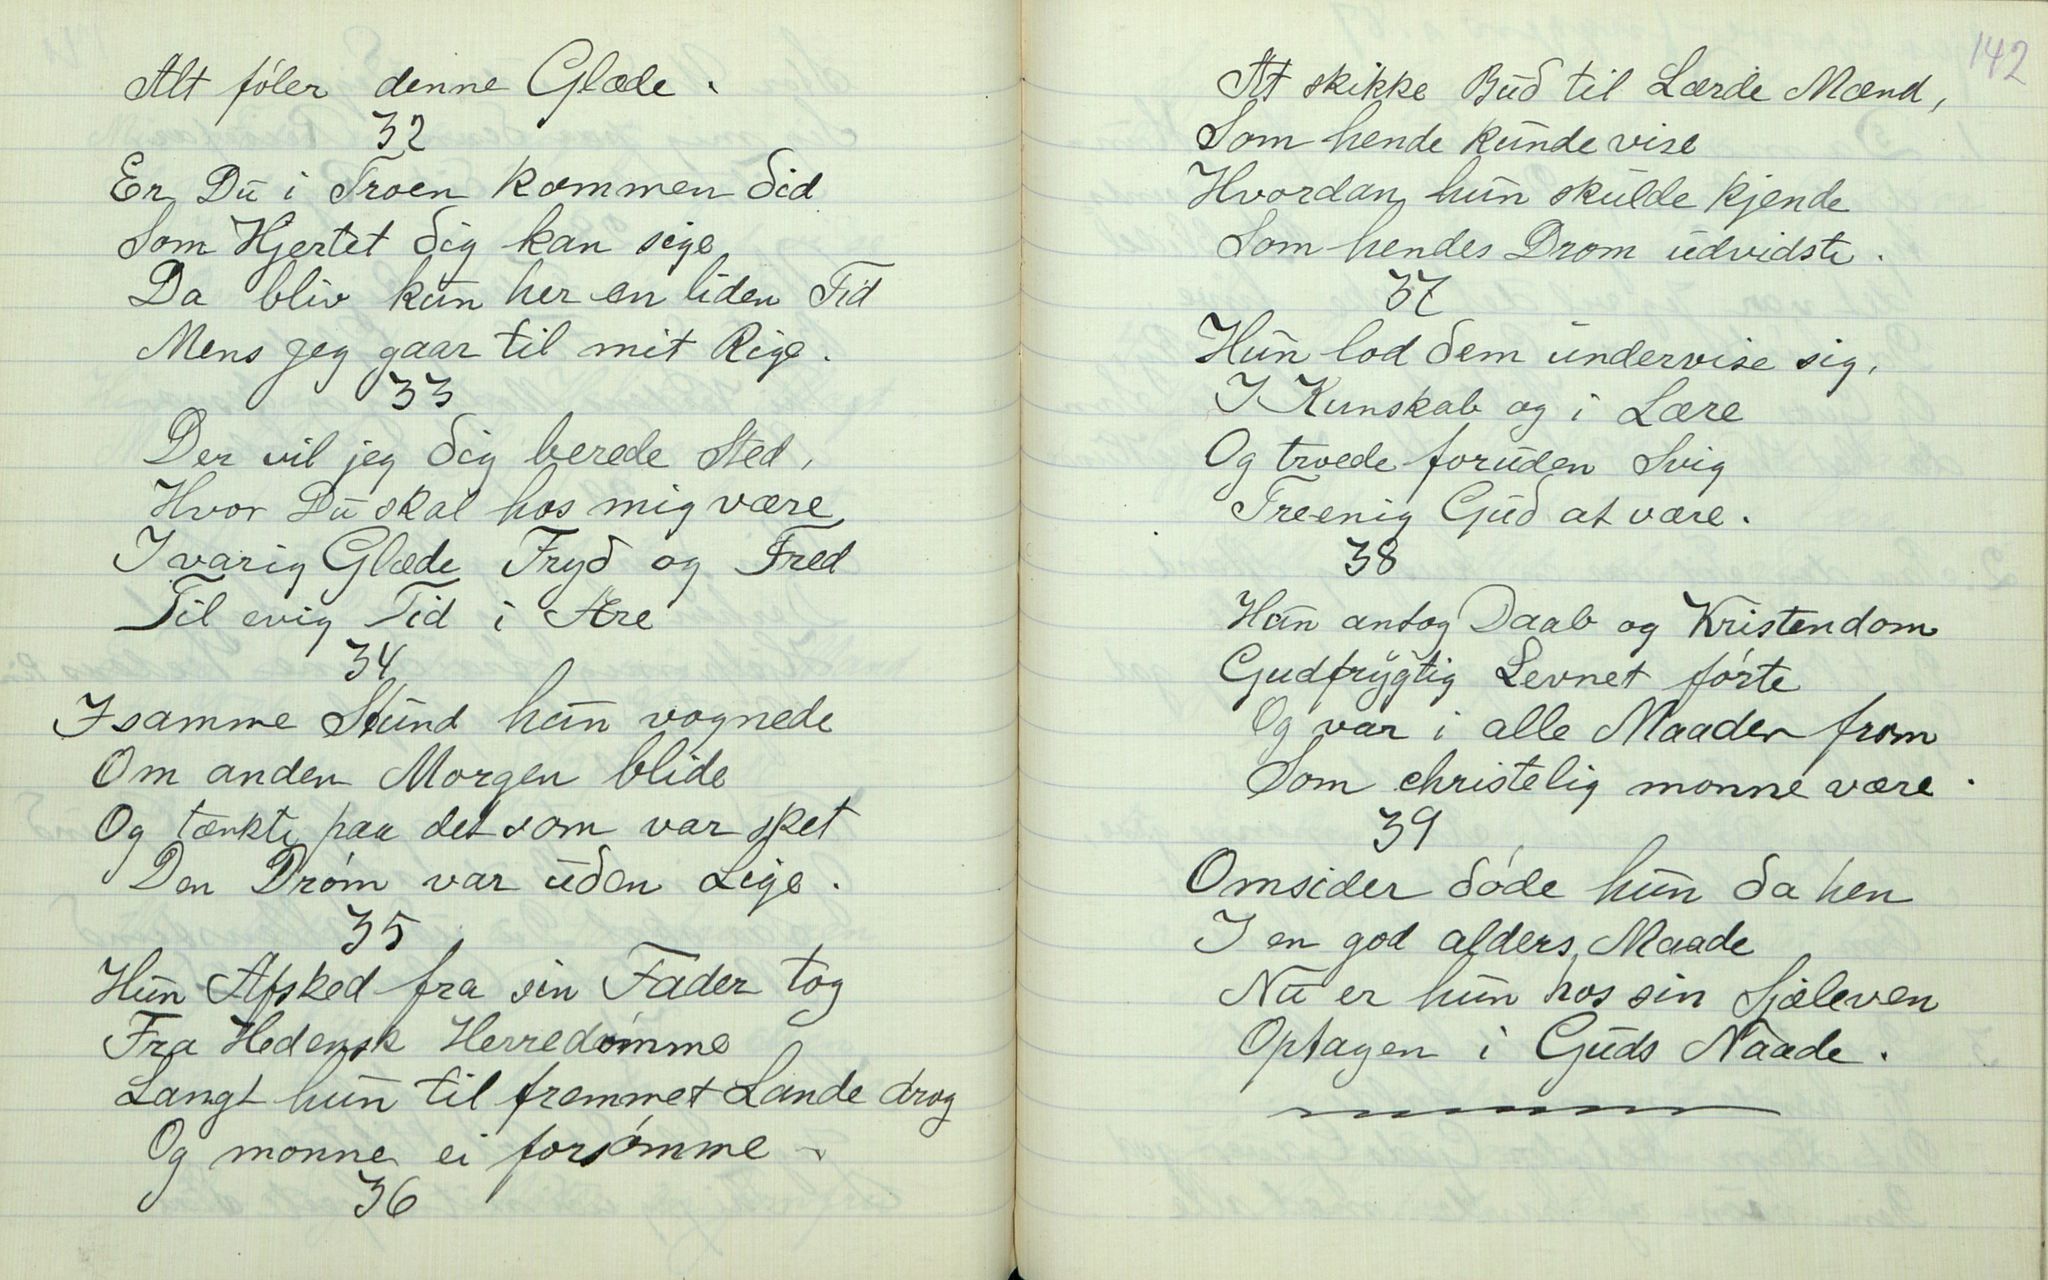 Alt føler denne Glæde.
32
Er Du i Troen kommen did
Som Hjertet dig kan sige
Da bliv kun her en liden Tid
Mens jeg gaar til mit Rige.
33
Der vil jeg dig berede Sted,
Hvor Du skal hos mig være
I varig Glæde Fryd og Fred
Til evig Tid i Ære
34
I samme Stund hun vognede
Om anden Morgen blide
Og tænkte paa det som var sket
Den Drøm var uden Lige.
35
Hun Afsked fra sin Fader tog
Fra Hedensk Herredømme
Langt hun til fremmet Lande drog
Og monne ei forsømme
36
142
At skikke Bud til Lærde Mænd,
Som hende kunde vise
Hvordan hun skulde kjende
Som hendes Drøm udvidste.
37
Hun lod dem undervise sig,
I Kunskab og i Lære
Og troede foruden Svig
Treenig Gud at være.
38
Hun antog Daab og Kristendom
Gudfrygtig Levnet førte
Og var i alle Maader from
Som christelig monne være.
39
Omsider døde hun da hen
I en god alders Maade
Nu er hun hos sin Sjæleven
Optagen i Guds Naade.